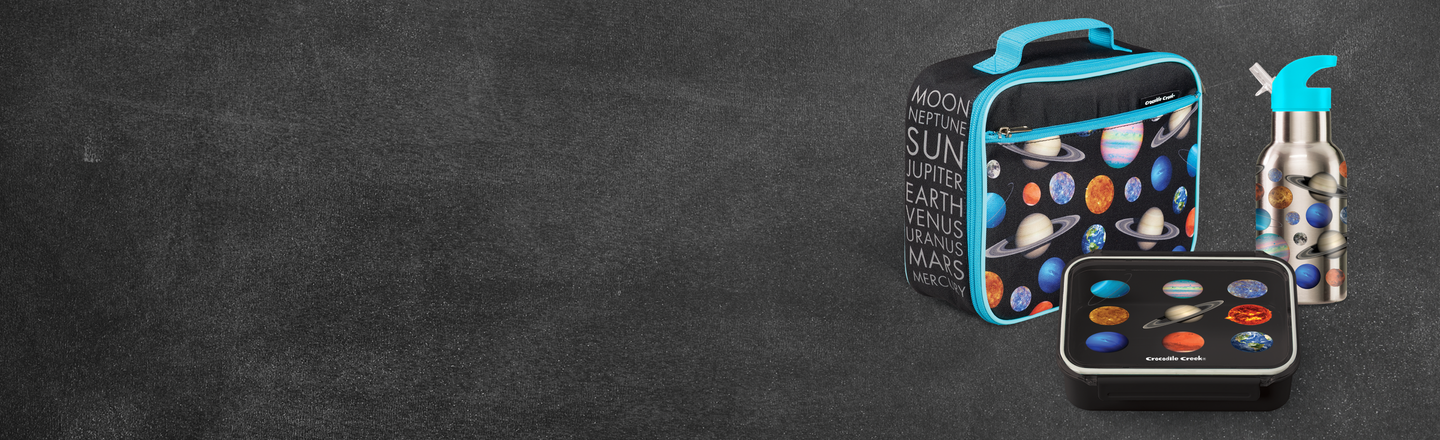 MOON
NEPTUNE
SUN
JUPITER
EARTH
VENUS
URANUS
MARS
MERCURY
Crocodile Creek
Crocodile Creek®